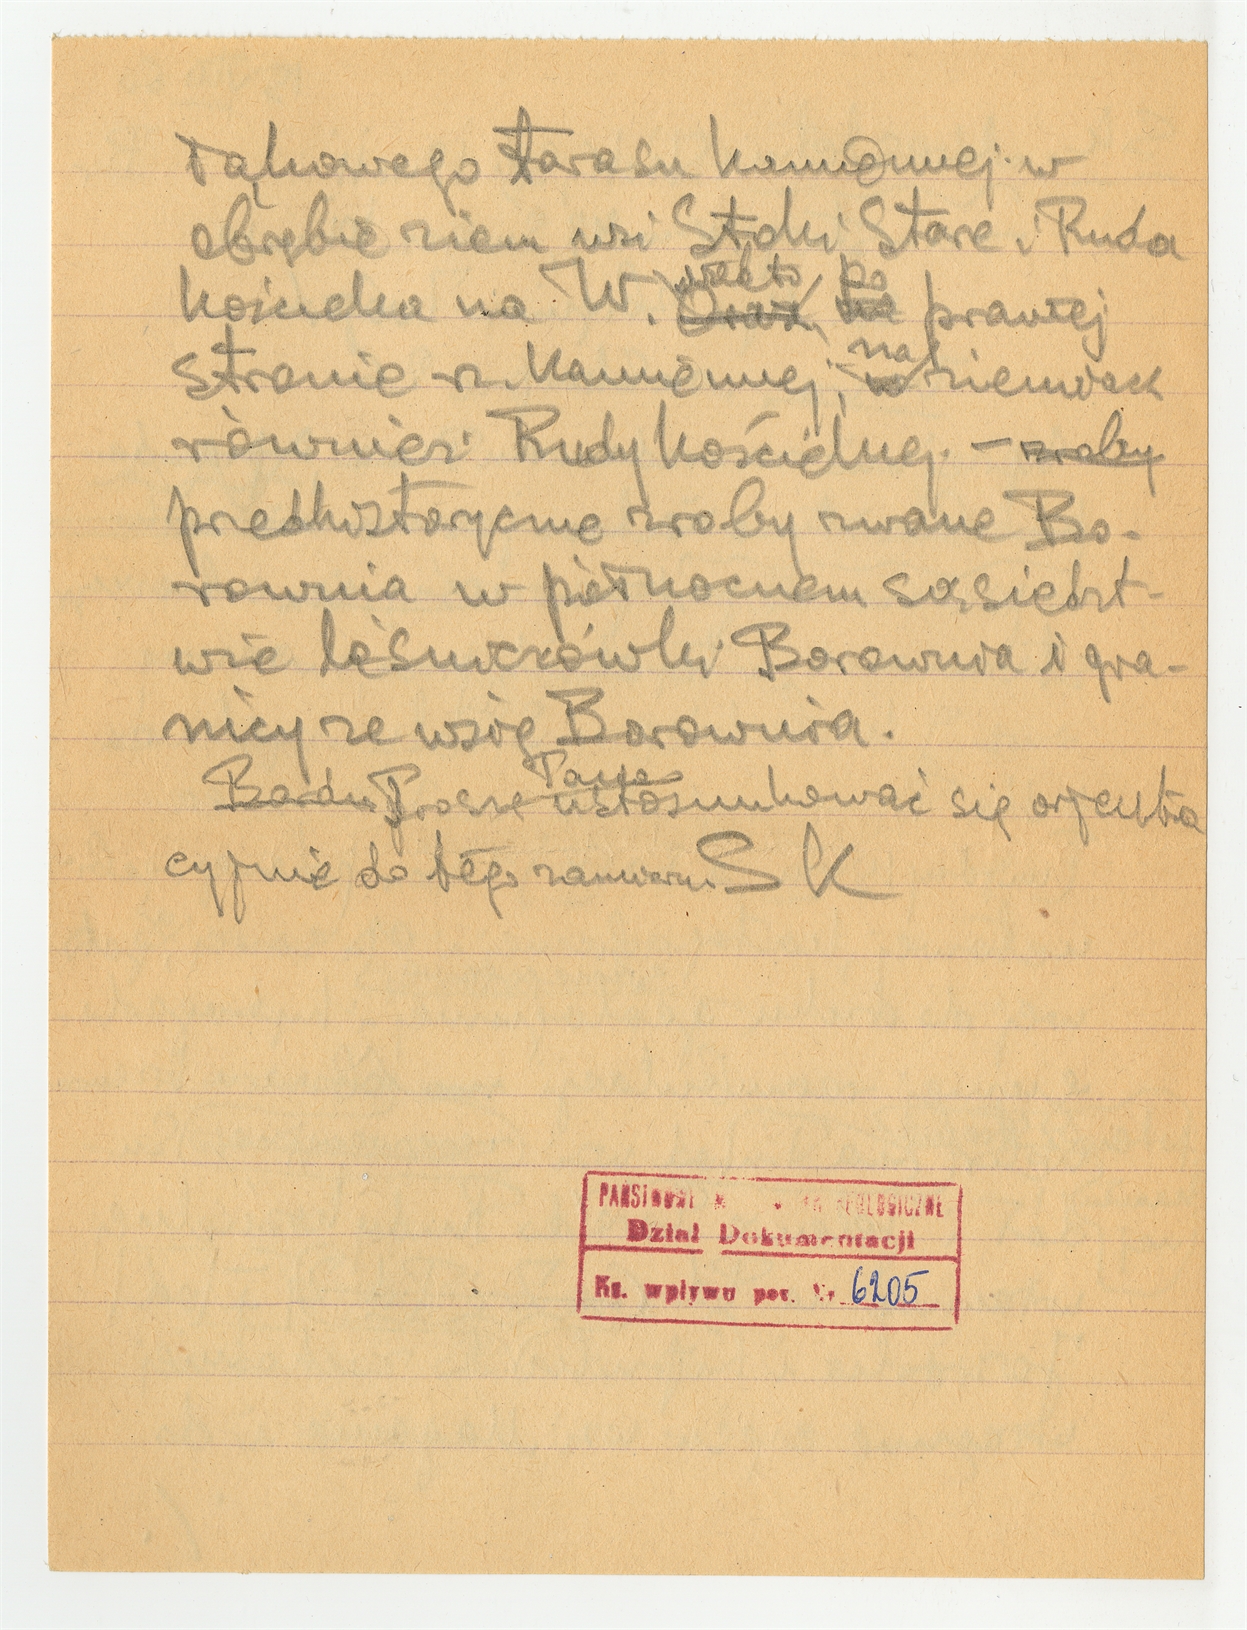 łąkowego tarasu Kamiennej w
obrębie ziem wsi Stoki Stare i Ruda
Kościelna na W. Oraz, nadto po prawej
stronie rz. Kamiennej, na ziemiach
również Rudy Kościelnej. – zroby
predhistoryczne zroby zwane Bo-
rownia w północnem sąsiedzt-
wie leśniczówki Borownia i gra-
nicy ze wsią Borownia.
Bardzo Proszę Pana ustosunkować się orjenta
cyjnie do tego zamiaru SK
PAŃSTWOWE ARCHEOLOGICZNE
Dział Dokumentacji
Ks. wpływu poz. Nr 6205